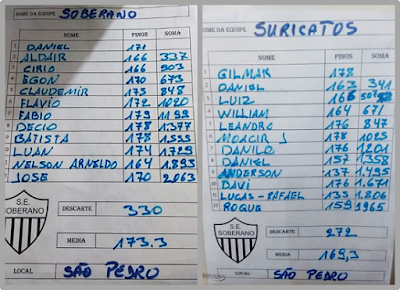 SOBERANO
NOME PINOS SOMA
1 DANIEL 171
ALDAIR 166 337
CIRIO 166 503
EGON 170 673
CLAUDEMIR 175 848
FLAVIO 172 1020
FABIO 179 1199
DECIO 178 1377
BATISTA 178 1555
LUAN 174 1729
NELSON ARNELDO 164 1.893
JOSE 170 2063
S.E. SOBERANO
DESCARTE 330
MÉDIA 173.3
LOCAL SÃO PEDRO
NOME DA EQUIPE SURICATOS
NOME PINOS SOMA
1 GILMAR 178
2 DANIEL 163 341
3 LUIZ 166 507
4 WILLIAM 164 671
5 LEANDRO 176 847
6 MOACIR J 178 1025
7 DANILO 176 1201
8 DANIEL 157 1358
9 ANDERSON 137 1.495
10 DAVI 176 1.671
11 LUCAS-RAFAEL 135 1.806
12 ROQUE 159 1965
S.E. SOBERANO
DESCARTE 272
MÉDIA 169,3
LOCAL SÃO PEDRO